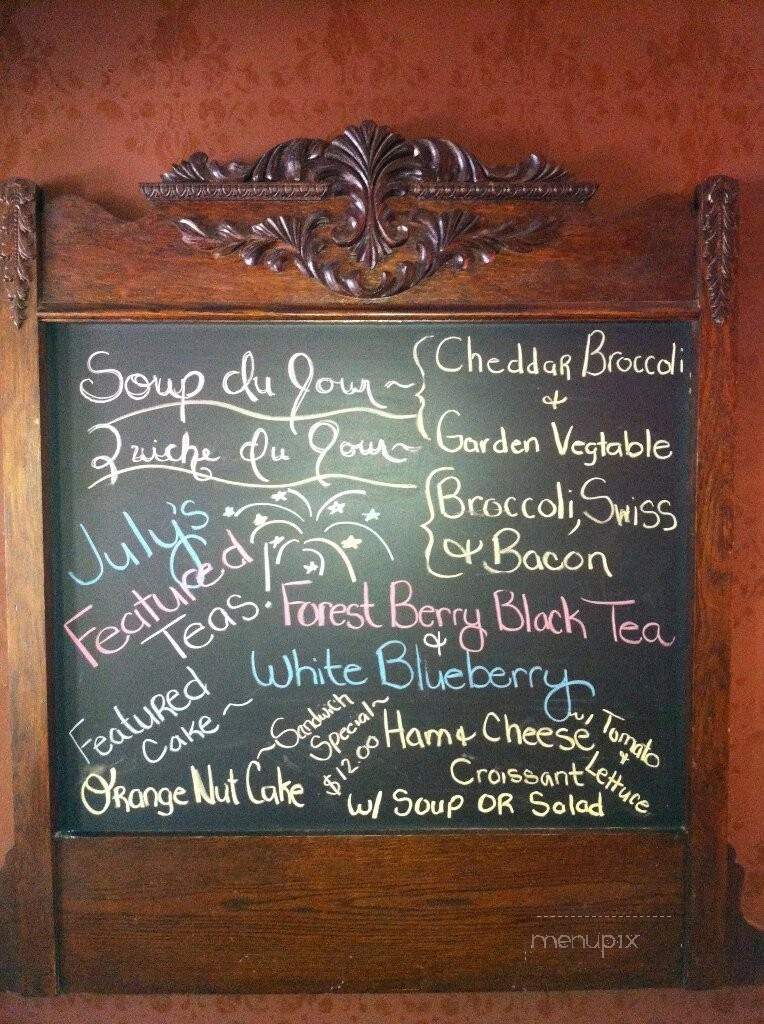 Soup du Jour ~ { Cheddar Broccoli
&
Garden Vegtable
Quiche du Jour ~ { Broccoli, Swiss
& Bacon
July's
Featured
Teas!
Forest Berry Black Tea
&
White Blueberry
Featured
Cake ~
Orange Nut Cake
~Sandwich
Special~
$12.00
Ham & Cheese
Croissant
w/ Tomato
&
Lettuce
w/ Soup OR Salad
menupix